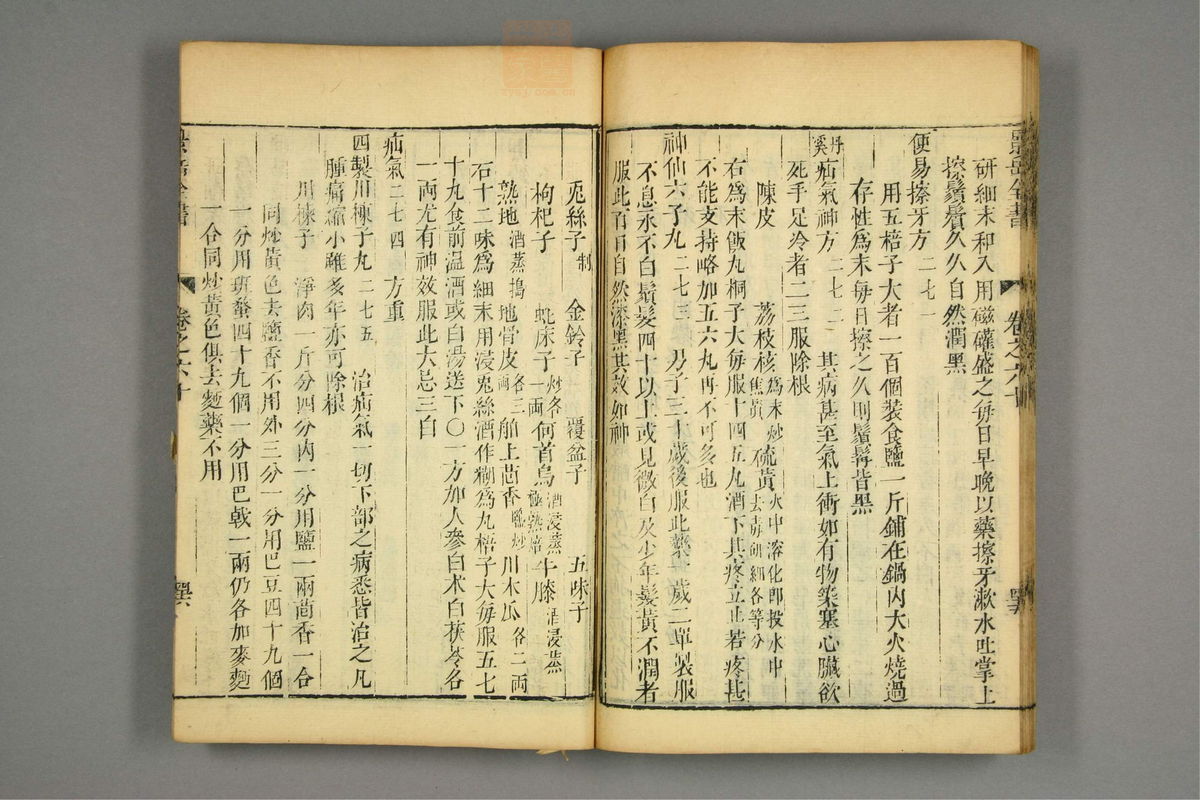 景岳全書 卷之六十
研細末和入用磁礶盛之每日早晚以藥擦牙漱水吐掌上
擦鬚鬢久久自然潤黑
便易擦牙方 二七一
用五棓子大者一百個裝食鹽一斤鋪在鍋內大火燒過
存性爲末每日擦之久則鬚髯皆黑
丹溪疝氣神方 二七二 其病甚至氣上衝如有物築塞心臟欲
死手足冷者二三服除根
陳皮 荔枝核爲末炒焦黃 硫黃火中溶化卽投水中去毒研細各等分
右爲末飯丸桐子大每服十四五丸酒下其疼立止若疼甚
不能支持略加五六丸再不可多也
神仙六子丸 二七三 男子三十歲後服此藥一歲二單製服
不息永不白鬚髮四十以上或見微白及少年髮黃不潤者
服此百日自然漆黑其效如神
兎絲子制 金鈴子 覆盆子 五味子
枸杞子 蛇床子炒各一兩 何首烏酒浸蒸極熟焙 牛膝酒浸蒸
熟地酒蒸搗 地骨皮各三兩 舶上茴香鹽炒 川木瓜各二兩
石十二味爲細末用浸兎絲酒作糊爲丸梧子大每服五七
十丸食前溫酒或白湯送下〇一方加人參白术白茯苓各
一兩尤有神效服此大忌三白
疝氣 二七四 方重
四製川楝子丸 二七五 治疝氣一切下部之病悉皆治之凡
腫痛縮小雖多年亦可除根
川楝子 淨肉一斤分四分內一分用鹽一兩茴香一合
同炒黃色去鹽香不用外三分一分用巴豆四十九個
一分用班蝥四十九個一分用巴戟一兩仍各加麥麵
一合同炒黃色俱去麵藥不用
景岳全書 卷之六十